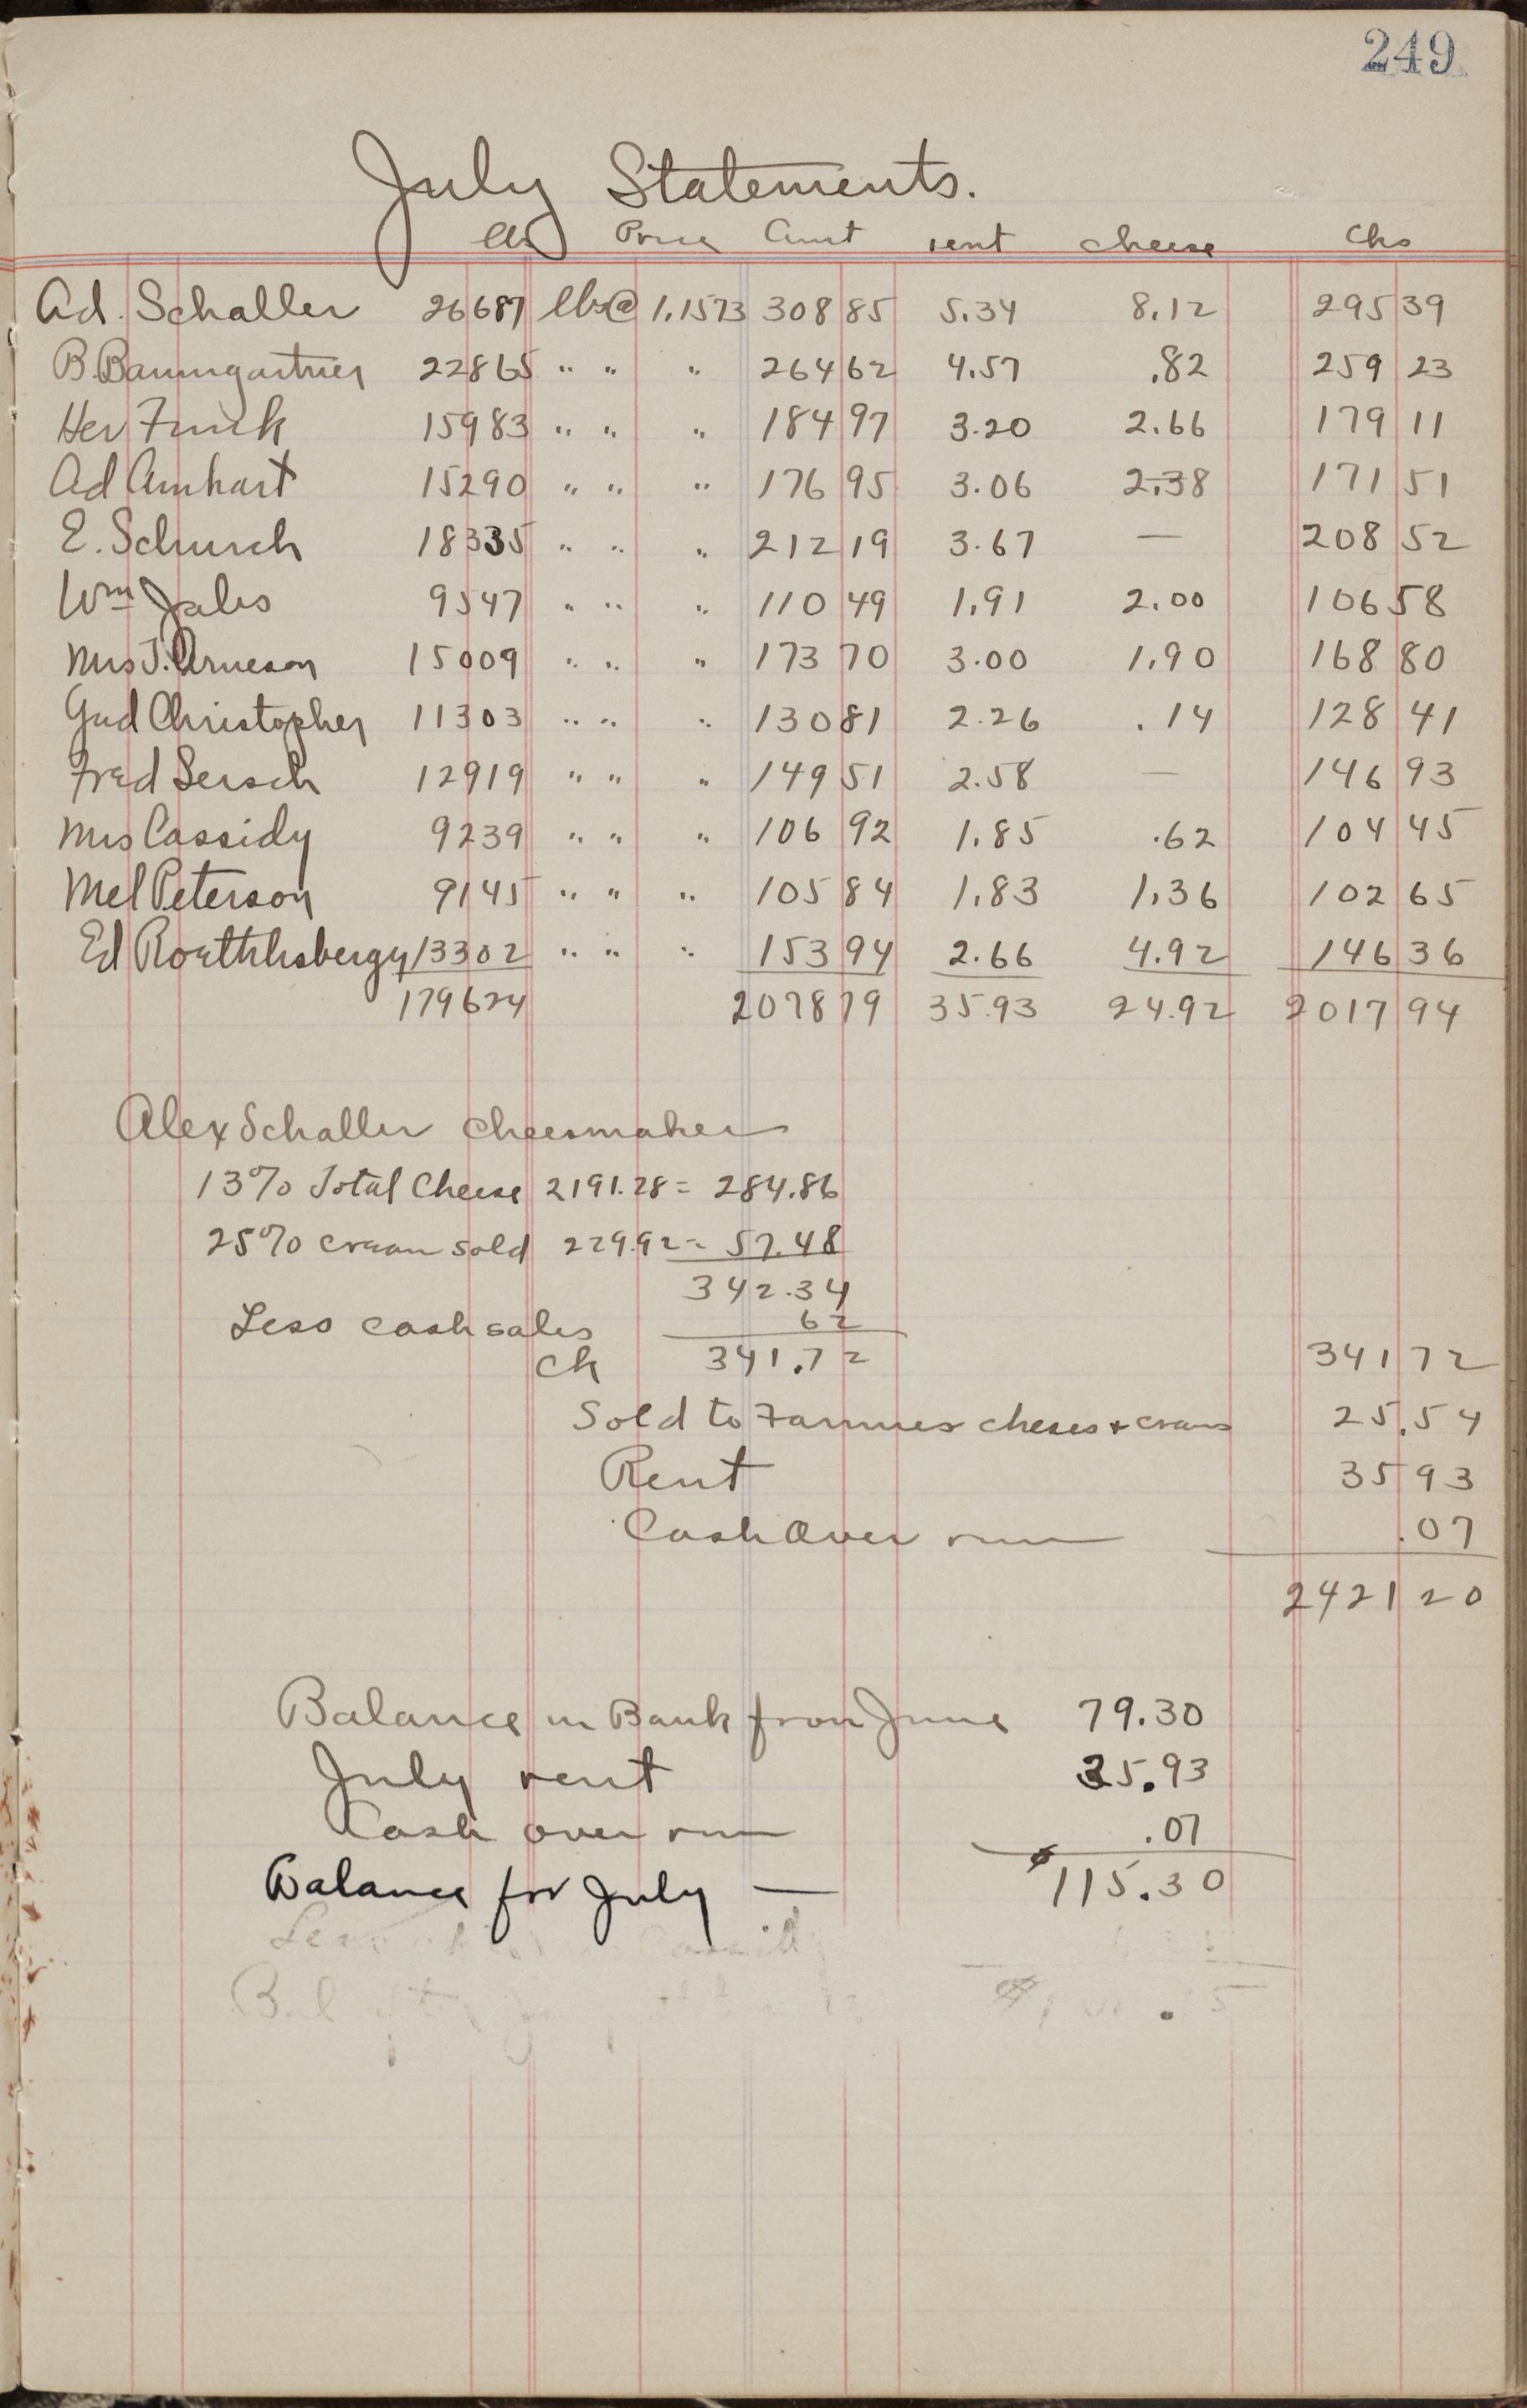 249
July Statements.
lbs Price Amt rent cheese Cks
Ad. Schaller 26687 lbs@ 1.1573 308 85 5.34 8.12 295 39
B. Baumgartner 22865 " " " 264 62 4.57 .82 259 23
Her Funk 15983 " " " 184 97 3.20 2.66 179 11
Ad Amhart 15290 " " " 176 95 3.06 2.38 171 51
E. Schurch 18335 " " " 212 19 3.67 — 208 52
Wm Jales 9547 " " " 110 49 1.91 2.00 106 58
Mrs J. Arneson 15009 " " " 173 70 3.00 1.90 168 80
Gud Christopher 11303 " " " 130 81 2.26 .14 128 41
Fred Sersch 12919 " " " 149 51 2.58 — 146 93
Mrs Cassidy 9239 " " " 106 92 1.85 .62 104 45
Mel Peterson 9145 " " " 105 84 1.83 1.36 102 65
Ed Roethlisbergy 13302 " " " 153 94 2.66 4.92 146 36
179624 2078 79 35.93 24.92 2017 94
Alex Schaller Cheesmaker
13% Total Cheese 2191.28 = 284.86
25% cream sold 229.92 = 57.48
342.34
Less cash sales 62
Ck 341.72 341 72
Sold to Farmers cheses + cream 25.54
Rent 35 93
Cash Over run .07
2421 20
Balance in Bank from June 79.30
July rent 35.93
Cash over run .07
Balance for July — 115.30